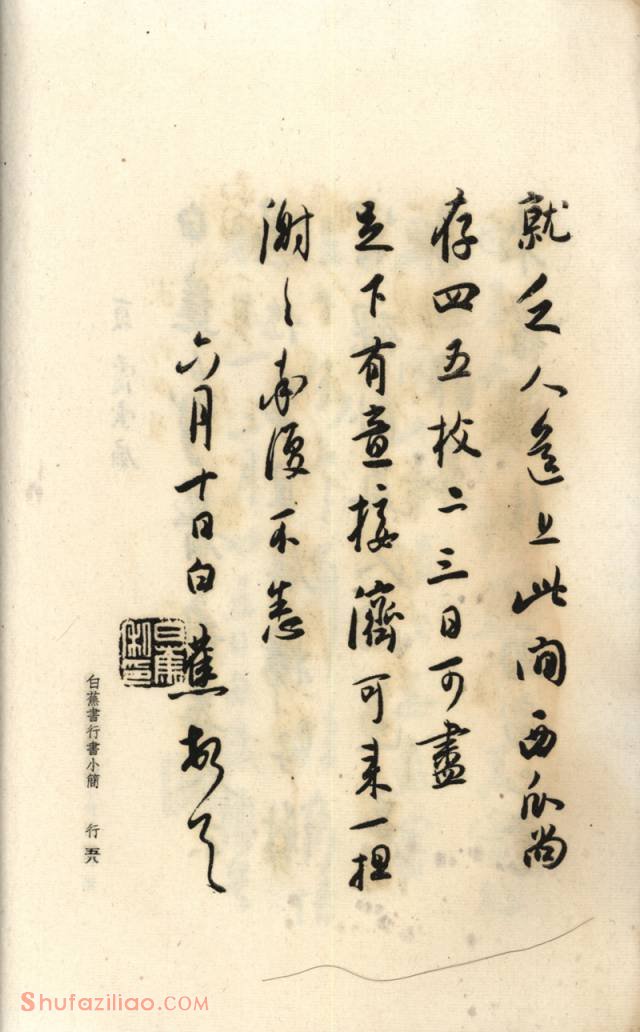 就乏人送上此间西瓜尚
存四五枚二三日可盡
足下有意接濟可来一担
謝〻 奉復不悉
六月十日白蕉頓首
白蕉
白蕉書行書小簡 行
Shufaziliao.COM